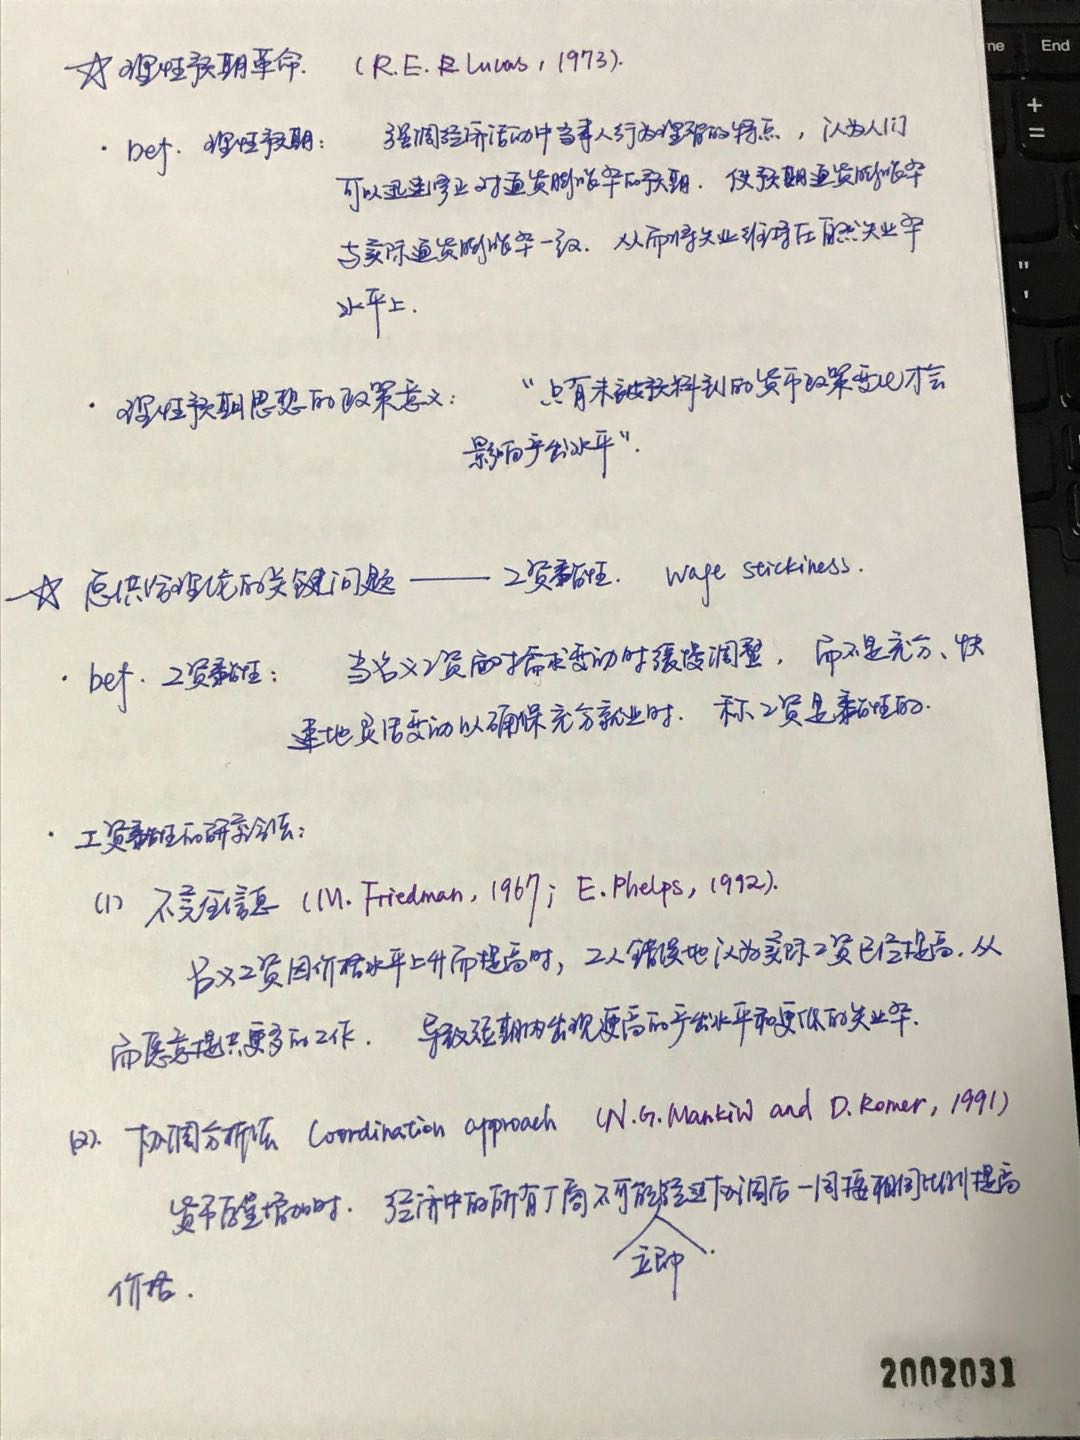 ☆ 理性预期革命. (R.E.R Lucas, 1973).
· Def. 理性预期: 强调经济活动中当事人行为理智的特点, 认为人们
可以迅速修正对通货膨胀率的预期. 使预期通货膨胀率
与实际通货膨胀率一致. 从而将失业维持在自然失业率
水平上.
· 理性预期思想的政策意义: "只有未被预料到的货币政策变化才会
影响产出水平".
☆ 总供给理论的关键问题 —— 工资黏性. wage stickiness.
· Def. 工资黏性: 当名义工资面对需求变动时缓慢调整, 而不是充分、快
速地灵活变动以确保充分就业时. 称工资是黏性的.
· 工资黏性的研究方法:
(1) 不完全信息 (M. Friedman, 1967; E. Phelps, 1992).
名义工资因价格水平上升而提高时, 工人错误地认为实际工资已经提高. 从
而愿意提供更多的工作. 导致短期内出现更高的产出水平和更低的失业率.
(2). 协调分析法 Coordination approach (N.G. Mankiw and D. Romer, 1991)
货币存量增加时. 经济中的所有厂商不可能经过协调后一同按相同比例提高
立即
价格.
2002031
End
+
=
"
'